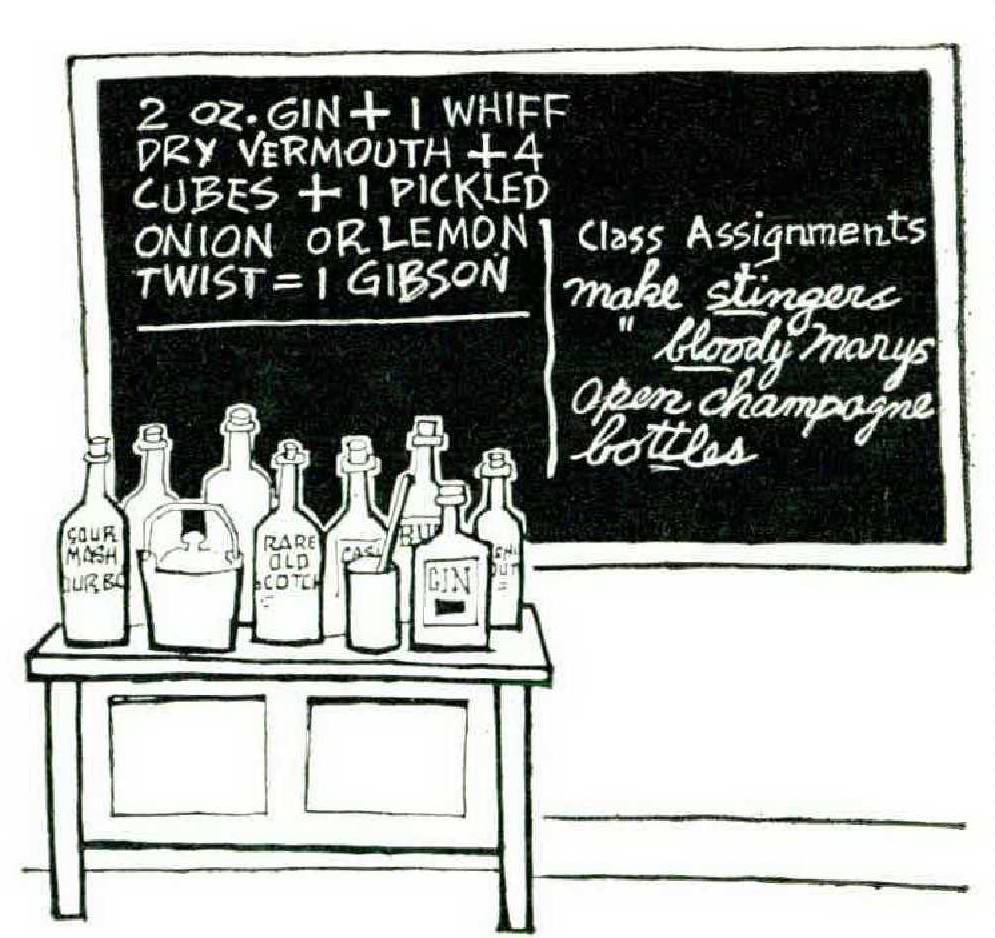 2 OZ. GIN + 1 WHIFF
DRY VERMOUTH + 4
CUBES + 1 PICKLED
ONION OR LEMON
TWIST = 1 GIBSON
Class Assignments
make stingers
" bloody marys
Open champagne
bottles
SOUR
MASH
URBO
RARE
OLD
SCOTCH
GIN